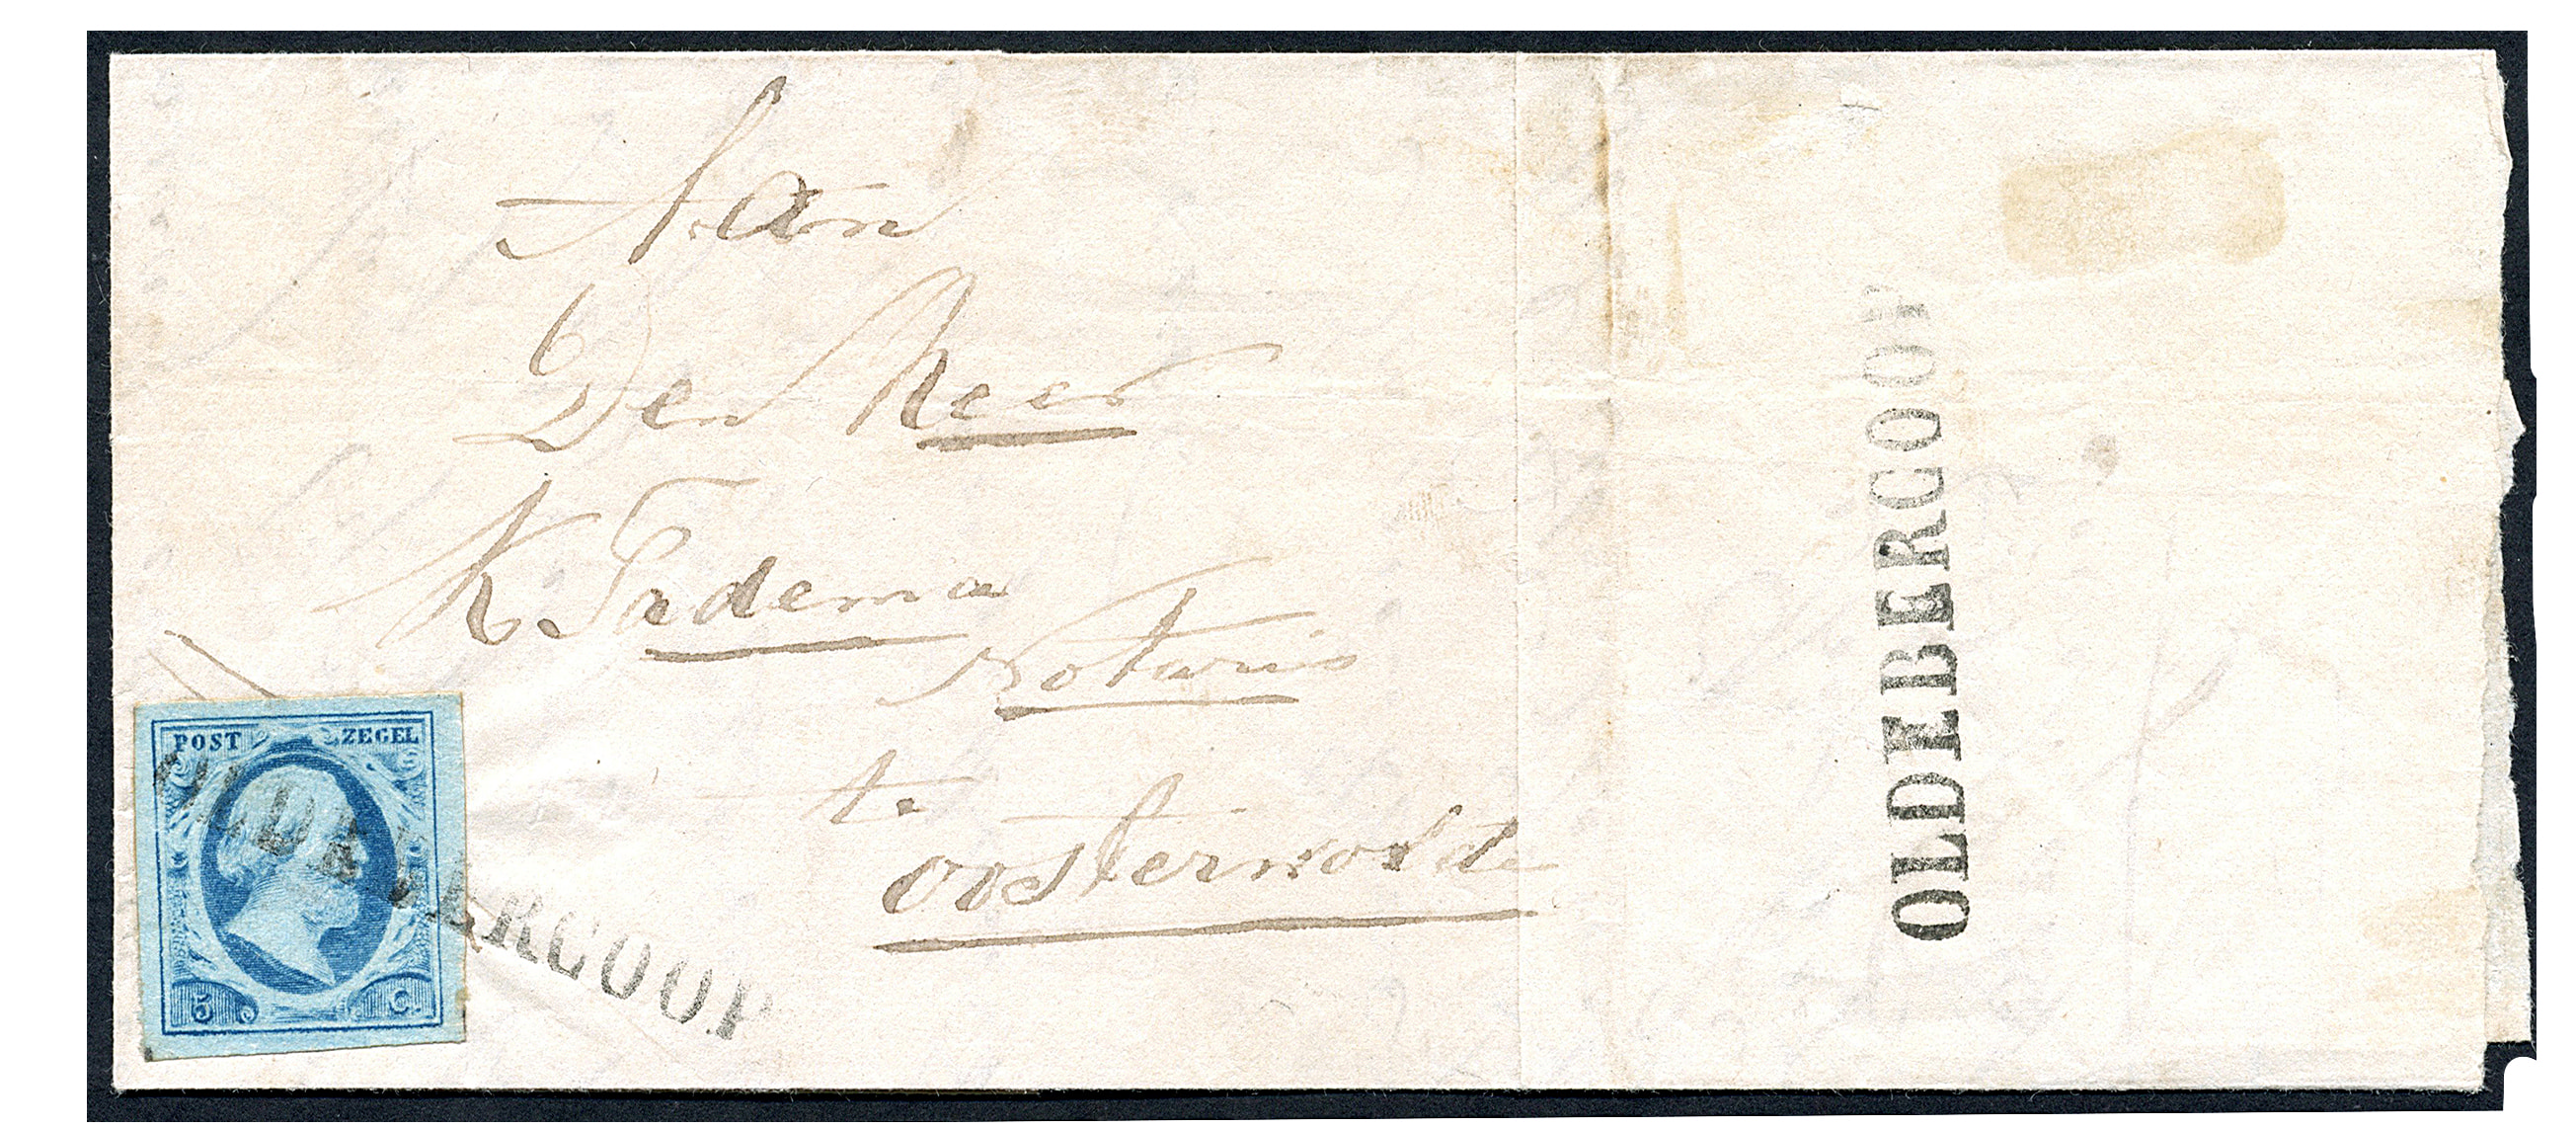 Aan
Den Heer
K. Tadema
Notaris
te
Oosterwolde
POST ZEGEL
5 C.
OLDEBERCOOP
OLDEBERCOOP